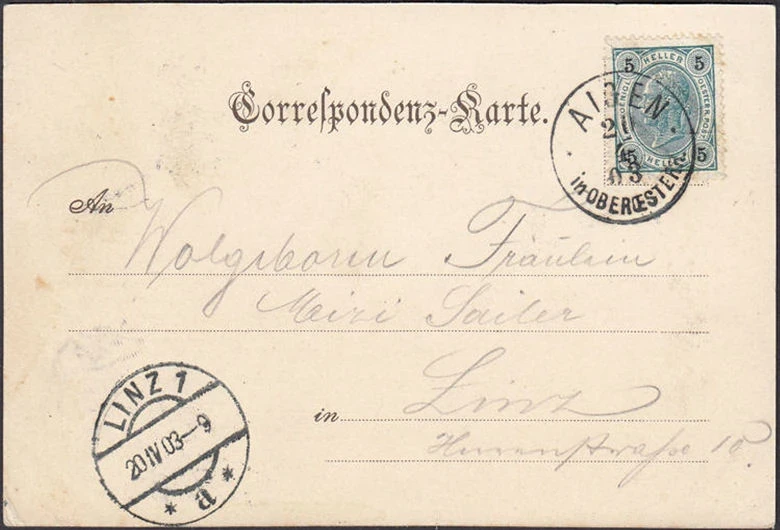 Correspondenz-Karte.
5 HELLER 5
5 HELLER 5
AIGEN
21
03
in OBERŒSTERR.
An Wolgeboren Fräulein
Mizi Sailer
in Linz
Herrenstraße 10
LINZ 1
20 IV 03-9
* a *